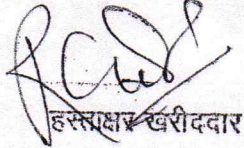 हस्ताक्षर खरीददार